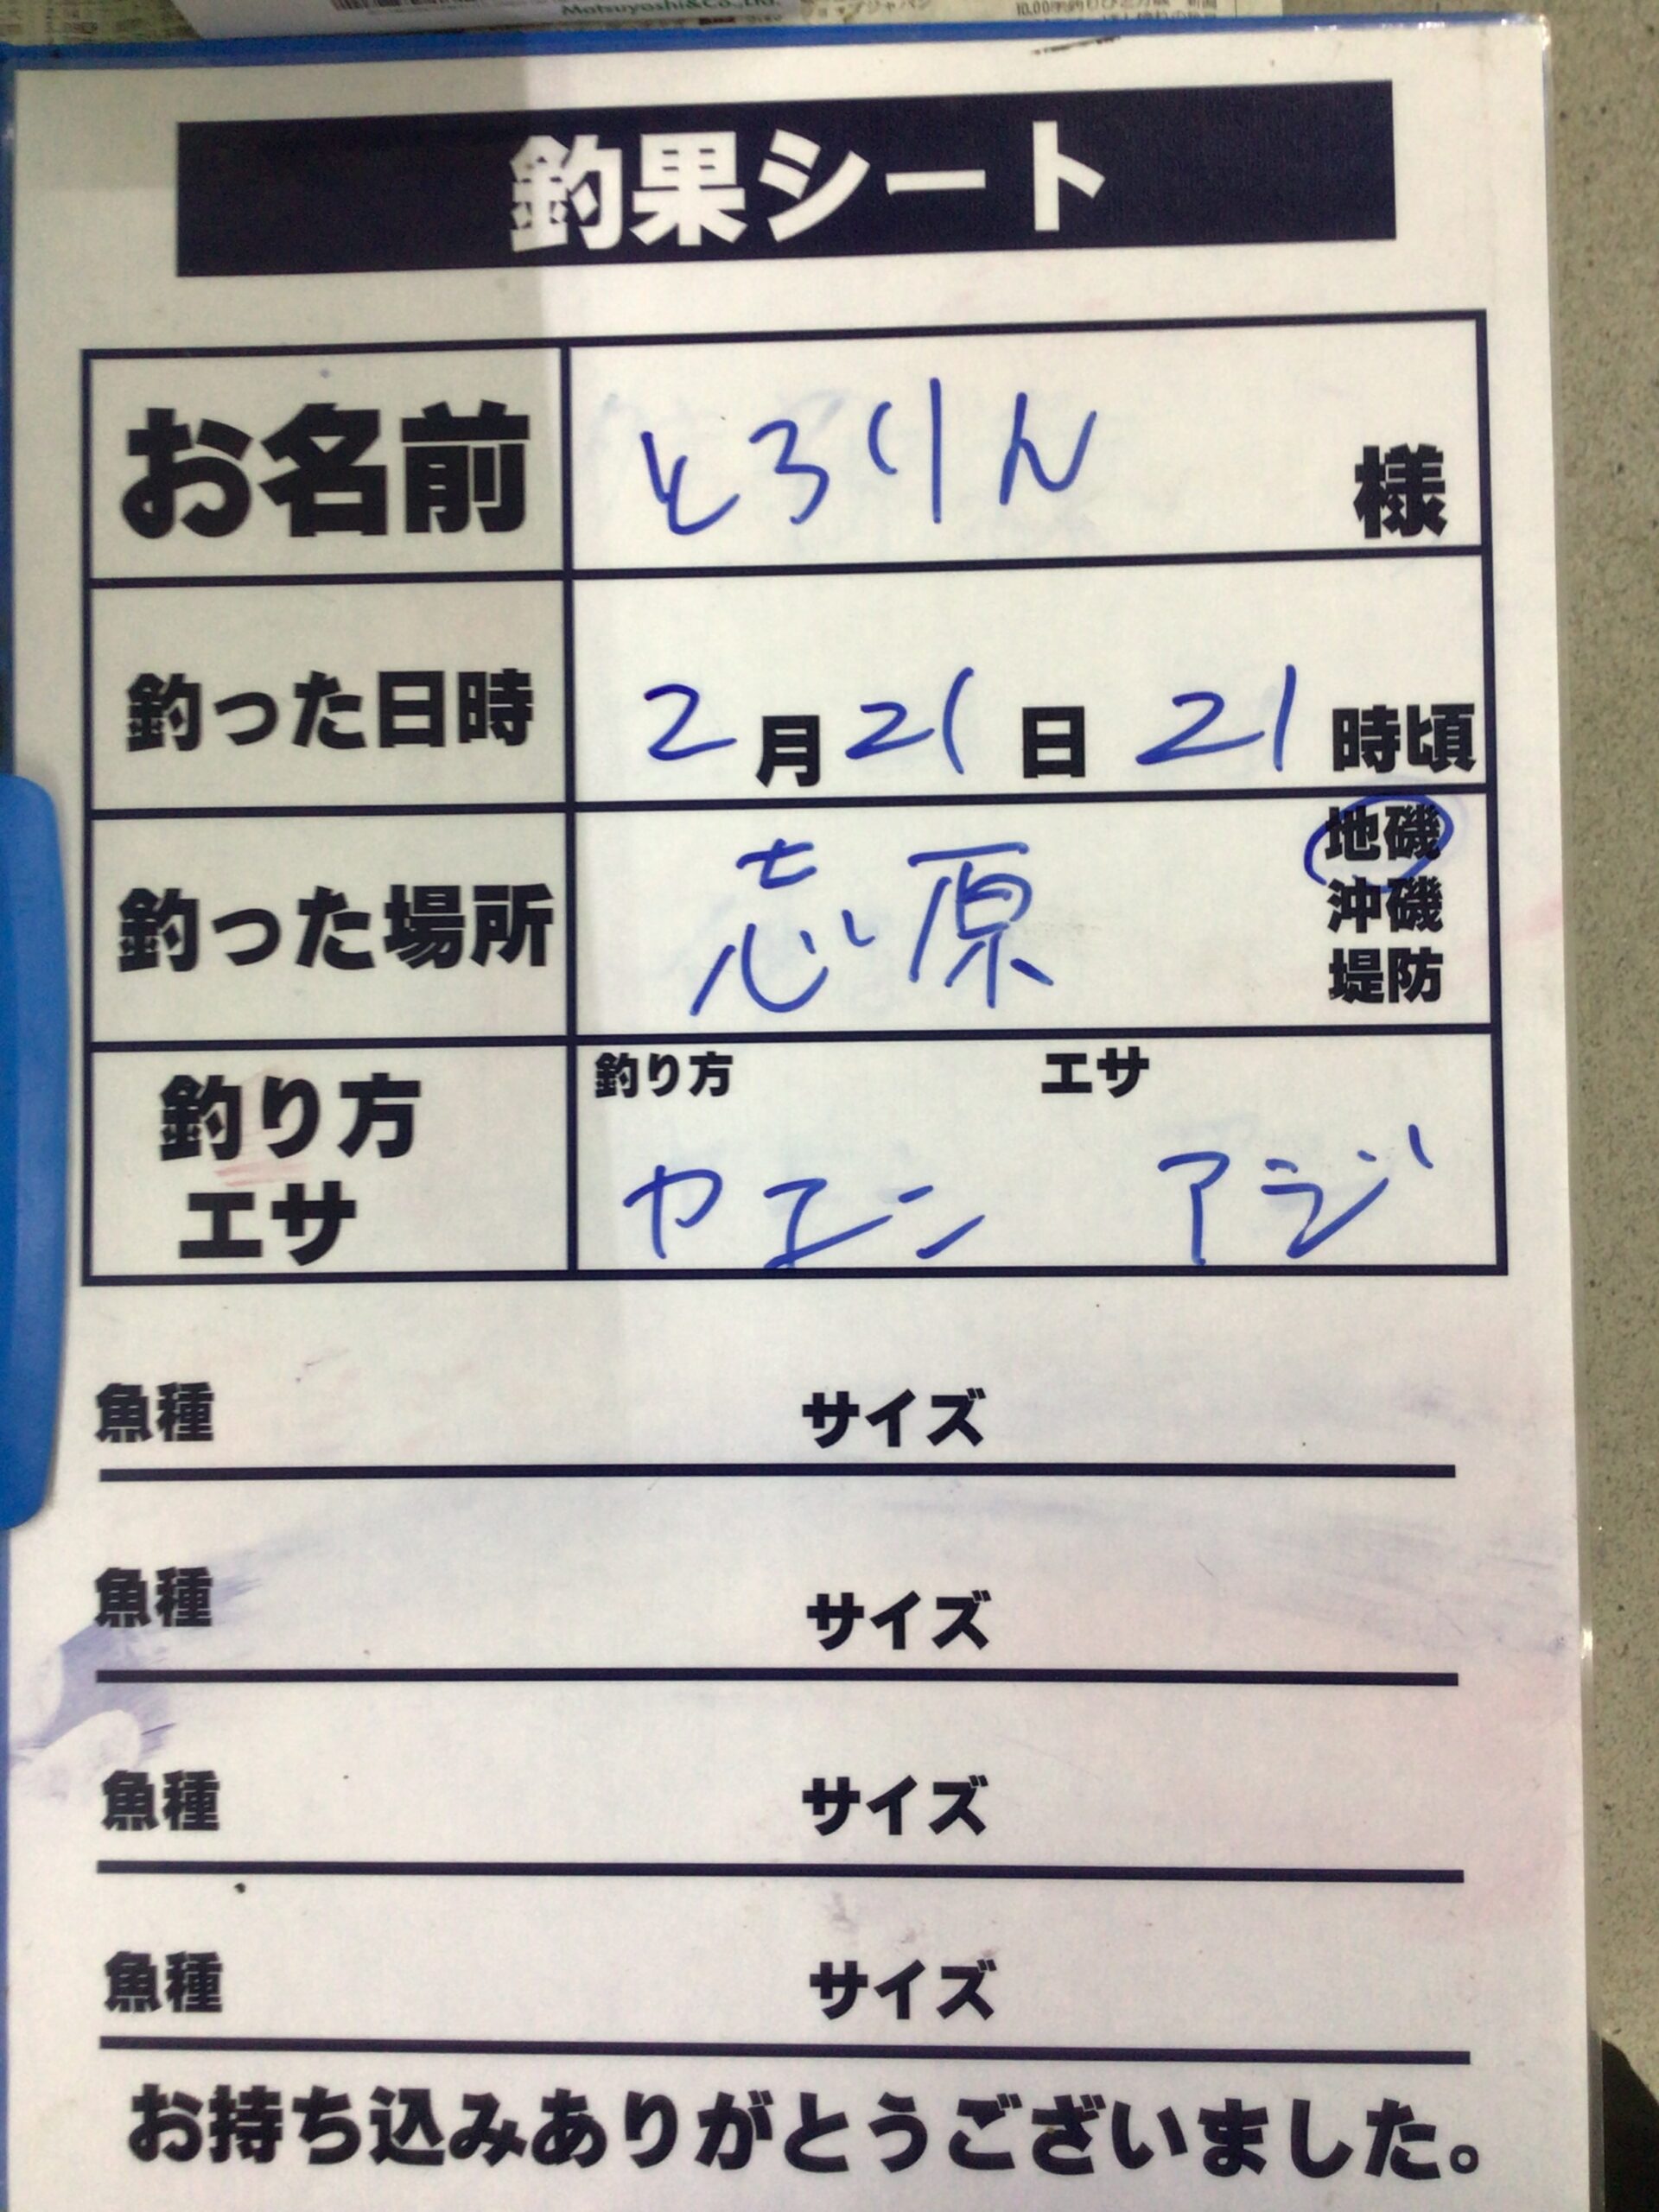 Matsuyoshi&Co.,Ltd.
釣果シート
お名前 とろりん 様
釣った日時 2月21日 21時頃
釣った場所 志原 地磯
沖磯
堤防
釣り方 エサ
釣り方 ヤエン アジ
エサ
魚種 サイズ
魚種 サイズ
魚種 サイズ
魚種 サイズ
お持ち込みありがとうございました。